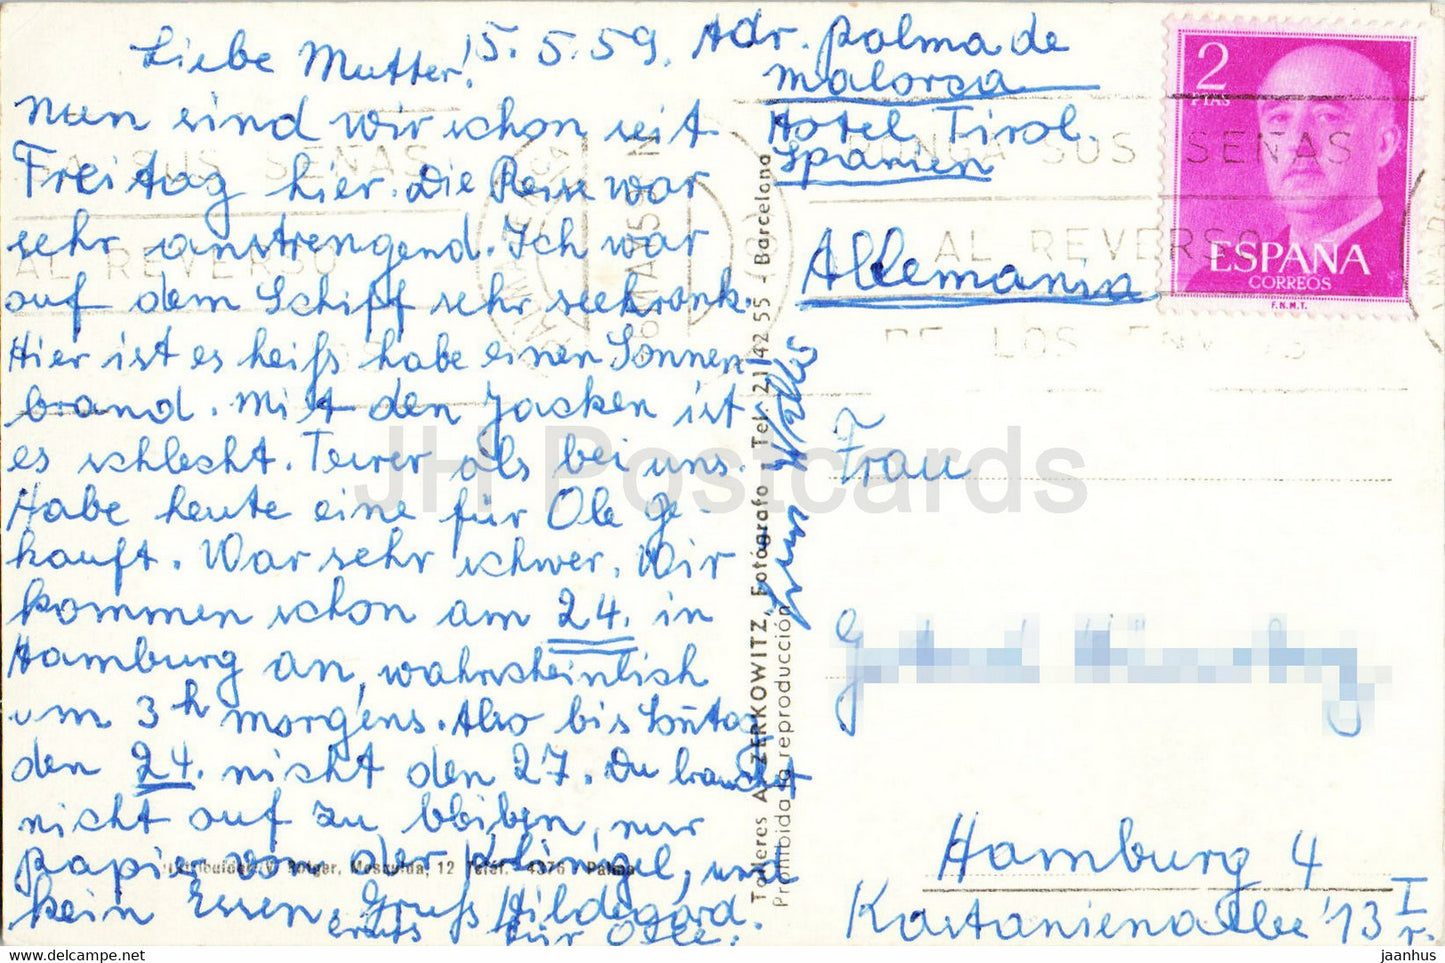 Liebe Mutter! 5.5.59.
Nun sind wir schon seit
Freitag hier. Die Reise war
sehr anstrengend. Ich war
auf dem Schiff sehr seekrank.
Hier ist es heiß habe einen Sonnen
brand. Mit den Jacken ist
es schlecht. Teurer als bei uns.
Habe heute eine für Ole ge-
kauft. War sehr schwer. Wir
kommen schon am 24. in
Hamburg an, wahrscheinlich
um 3h morgens. Also bis Sōntag
den 24. nicht den 27. Du brauchst
nicht auf zu bleiben, nur
papier von der Klingel, und
kein Essen. Gruß Hildegard.
für
Adr. Palma de
Malorca
Hotel Tirol.
Spanien
Allemania
Frau
Hamburg 4
Kastanienallee 13 I
r.
2
PTAS
ESPAÑA
CORREOS
F.N.M.T.
PONGA SUS SEÑAS
AL REVERSO
DE LOS ENV
SUS SEÑAS
AL REVERSO
Talleres A. ZERKOWITZ, Fotógrafo - Tel. 21 42 55 - Barcelona
Prohibida la reproducción
12 Teléf. 4376 Palma
JH Postcards
jaanhus